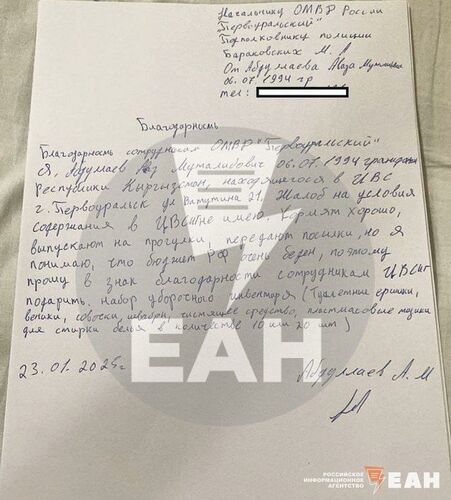 Начальнику ОМВД России
"Первоуральский"
Подполковнику полиции
Бараковских М. А
От Абдуллаева
06.07.1994 гр
тел:
Благодарность
Благодарность сотрудникам ОМВД "Первоуральский"
Я, Абдуллаев Муталибович 06.07.1994 гражданин
Республики Кыргызстан, находящегося в ЦВС
г. Первоуральск ул Ватутина 21. Жалоб на условия
содержания в ЦВСИГ не имею. Кормят хорошо,
выпускают на прогулки, передают посылки, но я
понимаю, что бюджет РФ очень беден, поэтому
прошу в знак благодарности сотрудникам ЦВСИГ
подарить набор уборочного инвентаря (Туалетные ершики,
веники, совочки, швабры, чистящее средство, пластмассовые тазики
для стирки белья в количестве 10 или 20 шт)
23.01.2025г
Абдуллаев А. М
ЕАН
РОССИЙСКОЕ
ИНФОРМАЦИОННОЕ
АГЕНТСТВО
ЕАН